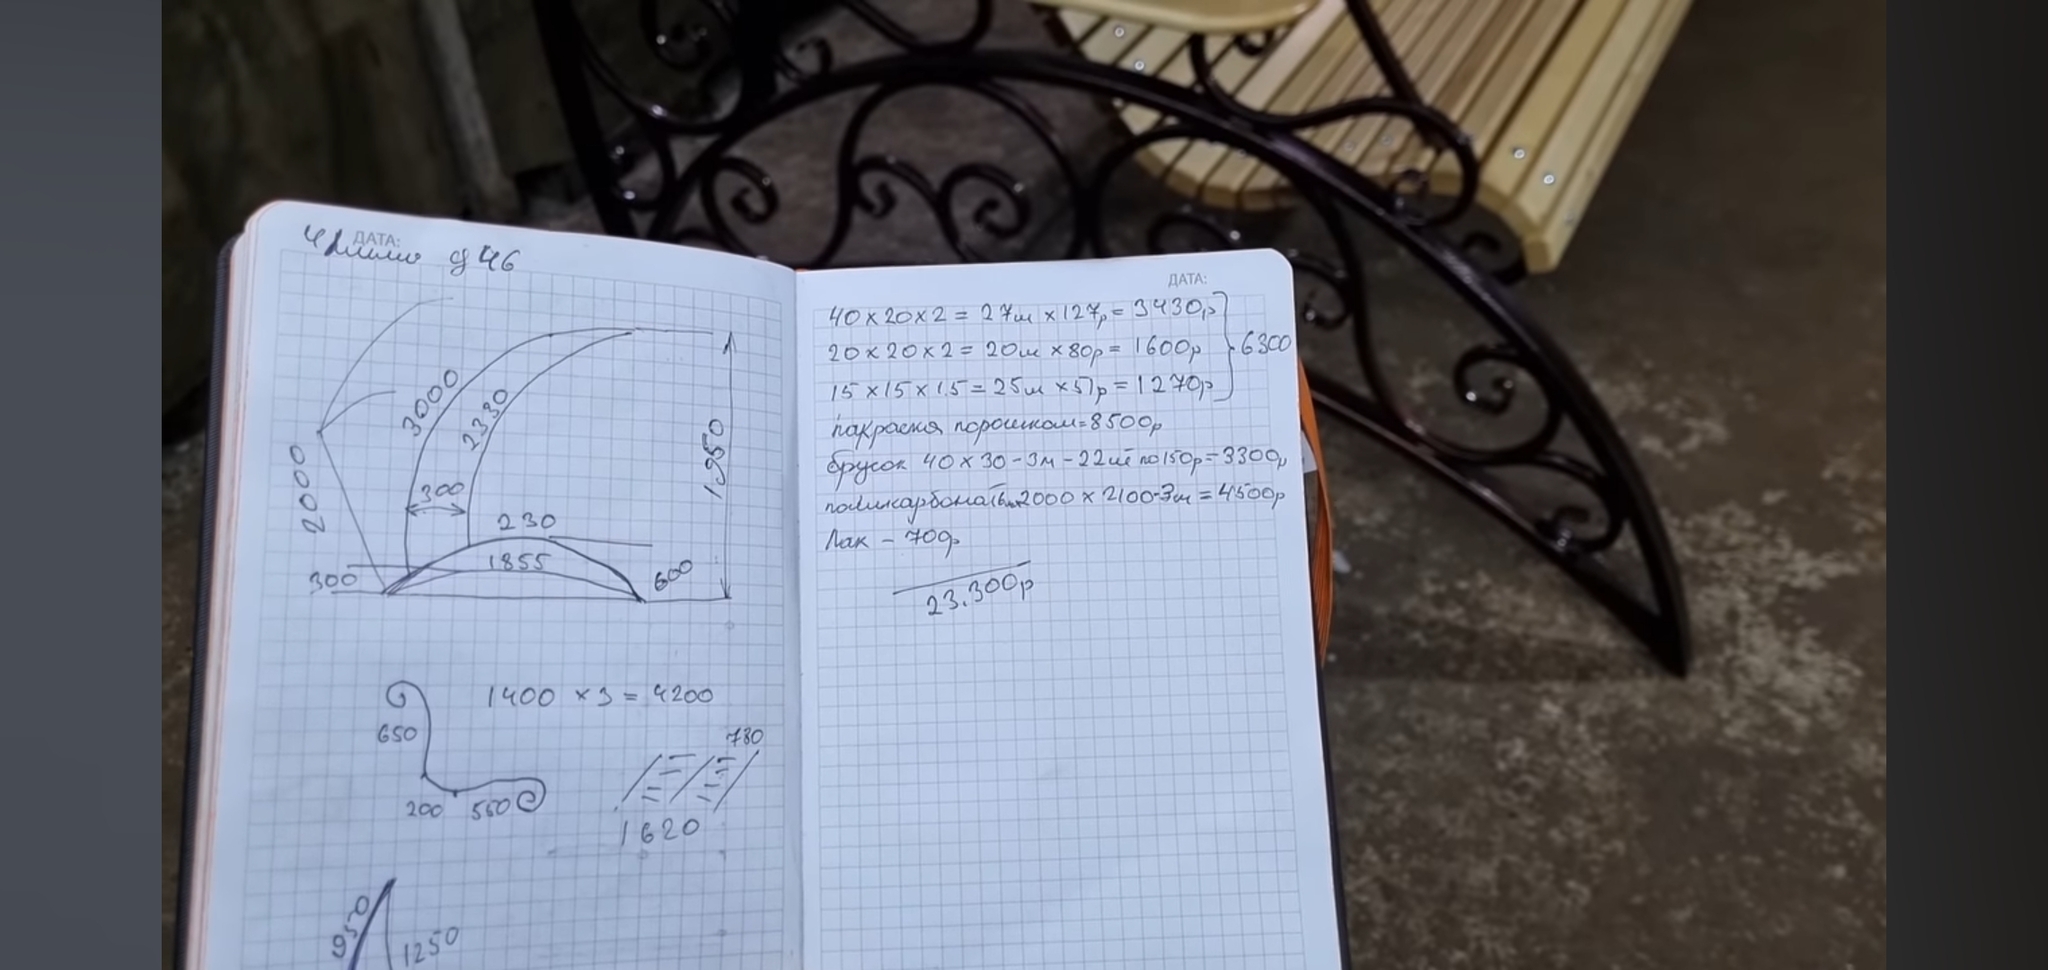 ДАТА:
д 46
3000
2330
2000
1950
300
230
1855
300
600
1400 × 3 = 4200
650
780
200 550
1620
950
1250
ДАТА:
40×20×2 = 27м ×127р = 3430р
20×20×2 = 20м ×80р = 1600р } 6300
15×15×1,5 = 25м ×51р = 1270р
покраска порошком = 8500р
брусок 40×30 - 3м - 22шт по 150р = 3300р
поликарбонат 2000 × 2100 - 3м = 4500р
Лак - 700р
23.300р